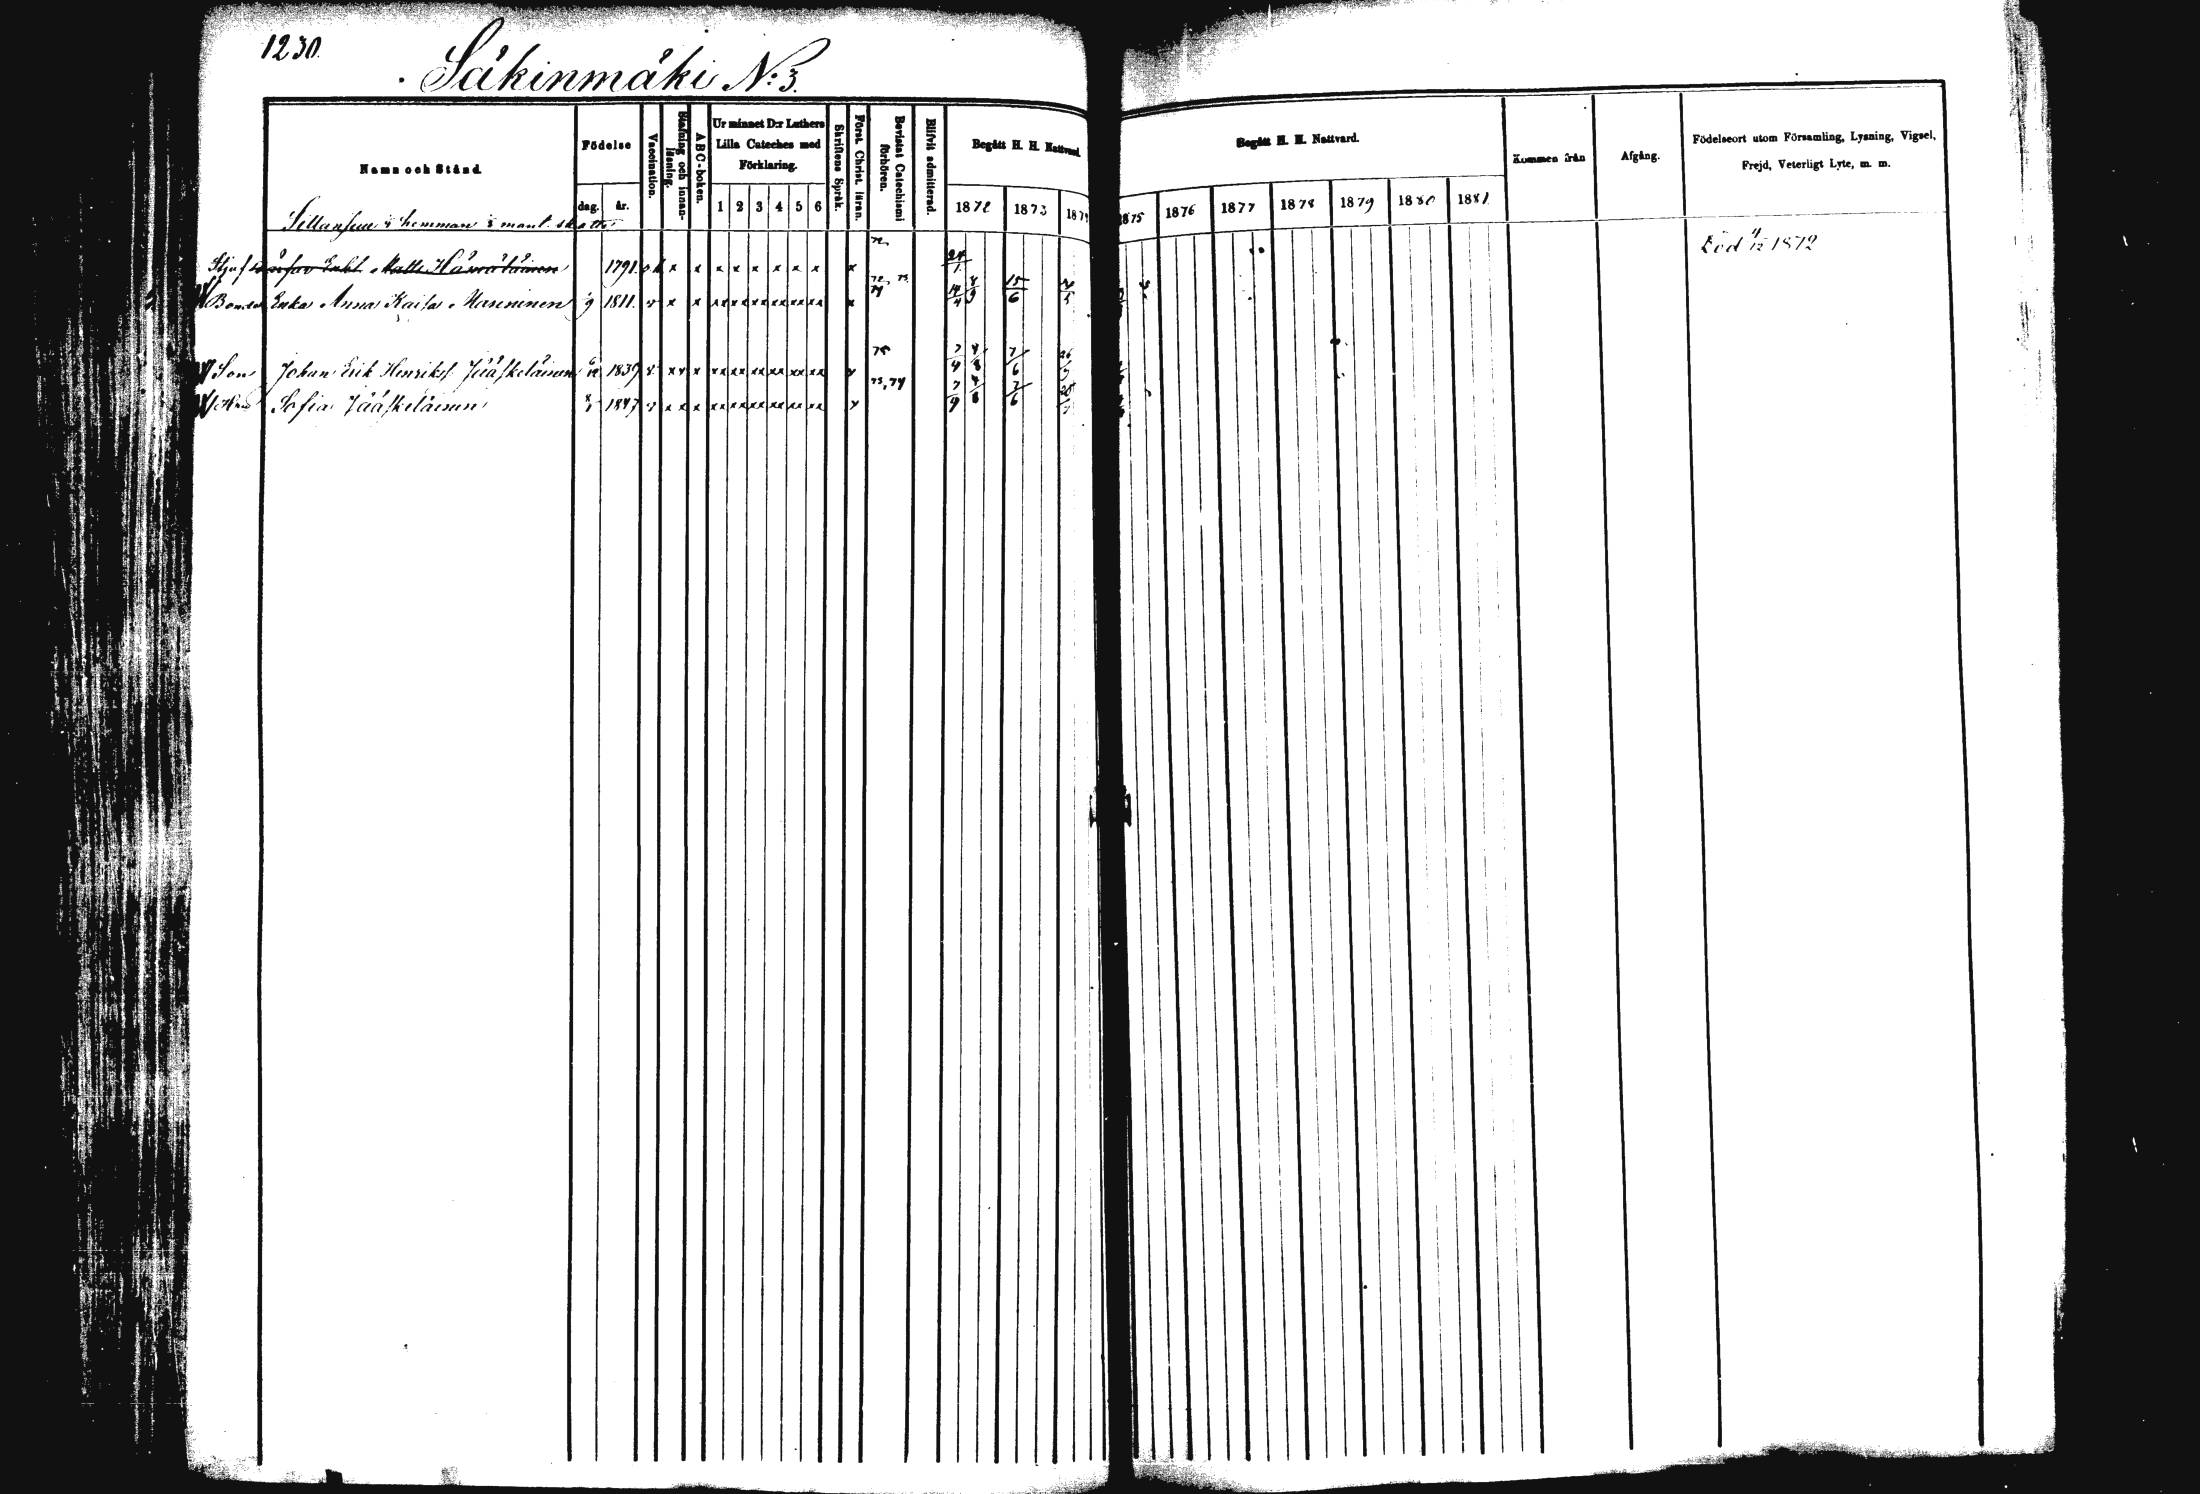 1230.
Säkinmäki N:3.
Namn och Stånd.
Födelse
dag. år.
Vaccination.
Stafning och innanläsning.
ABC-boken.
Ur minnet D:r Luthers Lilla Cateches med Förklaring.
1 2 3 4 5 6
Skriftens Språk.
Först. Christ. läran.
Bevistat Catechismi förhören.
Blifvit admitterad.
Begått H. H. Nattvard.
1872 1873 1874
Begått H. H. Nattvard.
1875 1876 1877 1878 1879 1880 1881
Kommen från
Afgång.
Födelseort utom Församling, Lysning, Vigsel,
Frejd, Veterligt Lyte, m. m.
hemman mant. skatte
Enkl. Matts 1791. x x x x x x x x x 72 24/1 Död 4/12 1872
Bonde Enka Anna Kaisa 9 1811. v x x xx xx xx xx xx xx x 15/6
Son Johan Erik Henriks. Jääskeläinen 1839 v xx x xx xx xx xx xx xx x 75 7/4 7/6
Sofia Jääskeläinen 1847 v x x x xx xx xx xx xx xx x 73, 74 7/6